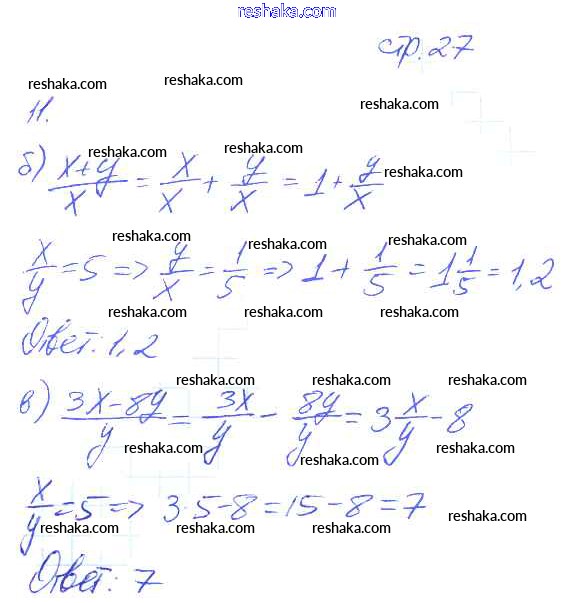 reshaka.com
стр. 27
reshaka.com reshaka.com reshaka.com
11.
reshaka.com reshaka.com reshaka.com
б) (x+y)/x = x/x + y/x = 1 + y/x
reshaka.com reshaka.com reshaka.com
x/y = 5 => y/x = 1/5 => 1 + 1/5 = 1 1/5 = 1,2
reshaka.com reshaka.com reshaka.com
Ответ: 1,2
reshaka.com reshaka.com reshaka.com
в) (3x-8y)/y = 3x/y - 8y/y = 3 x/y - 8
reshaka.com reshaka.com reshaka.com
x/y = 5 => 3·5-8=15-8=7
reshaka.com reshaka.com reshaka.com reshaka.com
Ответ: 7